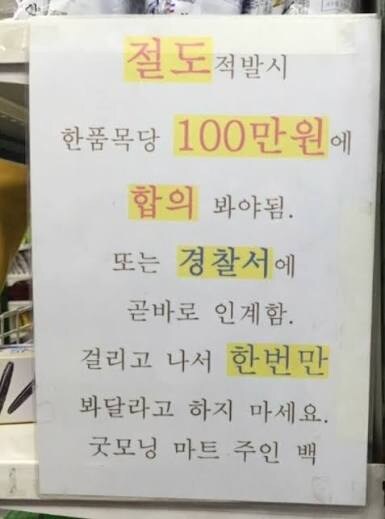 절도적발시
한품목당 100만원에
합의 봐야됨.
또는 경찰서에
곧바로 인계함.
걸리고 나서 한번만
봐달라고 하지 마세요.
굿모닝 마트 주인 백